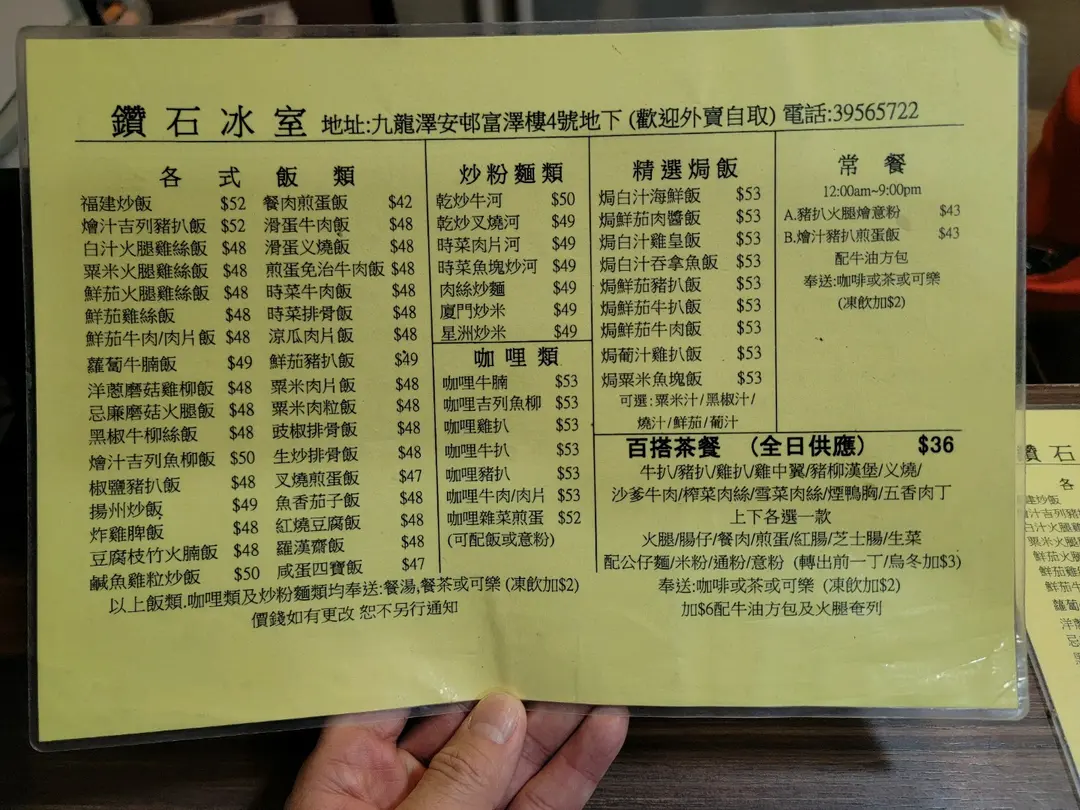 鑽石冰室 地址:九龍澤安邨富澤樓4號地下 (歡迎外賣自取) 電話:39565722
各式飯類
福建炒飯 $52
燴汁吉列豬扒飯 $52
白汁火腿雞絲飯 $48
粟米火腿雞絲飯 $48
鮮茄火腿雞絲飯 $48
鮮茄雞絲飯 $48
鮮茄牛肉/肉片飯 $48
蘿蔔牛腩飯 $49
洋蔥磨菇雞柳飯 $48
忌廉磨菇火腿飯 $48
黑椒牛柳絲飯 $48
燴汁吉列魚柳飯 $50
椒鹽豬扒飯 $48
揚州炒飯 $49
炸雞脾飯 $48
豆腐枝竹火腩飯 $48
鹹魚雞粒炒飯 $50
餐肉煎蛋飯 $42
滑蛋牛肉飯 $48
滑蛋义燒飯 $48
煎蛋免治牛肉飯 $48
時菜牛肉飯 $48
時菜排骨飯 $48
涼瓜肉片飯 $48
鮮茄豬扒飯 $49
粟米肉片飯 $48
粟米肉粒飯 $48
豉椒排骨飯 $48
生炒排骨飯 $48
叉燒煎蛋飯 $47
魚香茄子飯 $48
紅燒豆腐飯 $48
羅漢齋飯 $48
咸蛋四寶飯 $47
炒粉麵類
乾炒牛河 $50
乾炒叉燒河 $49
時菜肉片河 $49
時菜魚塊炒河 $49
肉絲炒麵 $49
廈門炒米 $49
星洲炒米 $49
咖哩類
咖哩牛腩 $53
咖哩吉列魚柳 $53
咖哩雞扒 $53
咖哩牛扒 $53
咖哩豬扒 $53
咖哩牛肉/肉片 $53
咖哩雜菜煎蛋 $52
(可配飯或意粉)
以上飯類.咖哩類及炒粉麵類均奉送:餐湯,餐茶或可樂 (凍飲加$2)
價錢如有更改 恕不另行通知
精選焗飯
焗白汁海鮮飯 $53
焗鮮茄肉醬飯 $53
焗白汁雞皇飯 $53
焗白汁吞拿魚飯 $53
焗鮮茄豬扒飯 $53
焗鮮茄牛扒飯 $53
焗鮮茄牛肉飯 $53
焗葡汁雞扒飯 $53
焗粟米魚塊飯 $53
可選:粟米汁/黑椒汁/
燒汁/鮮茄/葡汁
常餐
12:00am~9:00pm
A.豬扒火腿燴意粉 $43
B.燴汁豬扒煎蛋飯 $43
配牛油方包
奉送:咖啡或茶或可樂
(凍飲加$2)
百搭茶餐 (全日供應) $36
牛扒/豬扒/雞扒/雞中翼/豬柳漢堡/义燒/
沙爹牛肉/榨菜肉絲/雪菜肉絲/煙鴨胸/五香肉丁
上下各選一款
火腿/腸仔/餐肉/煎蛋/紅腸/芝士腸/生菜
配公仔麵/米粉/通粉/意粉 (轉出前一丁/烏冬加$3)
奉送:咖啡或茶或可樂 (凍飲加$2)
加$6配牛油方包及火腿奄列